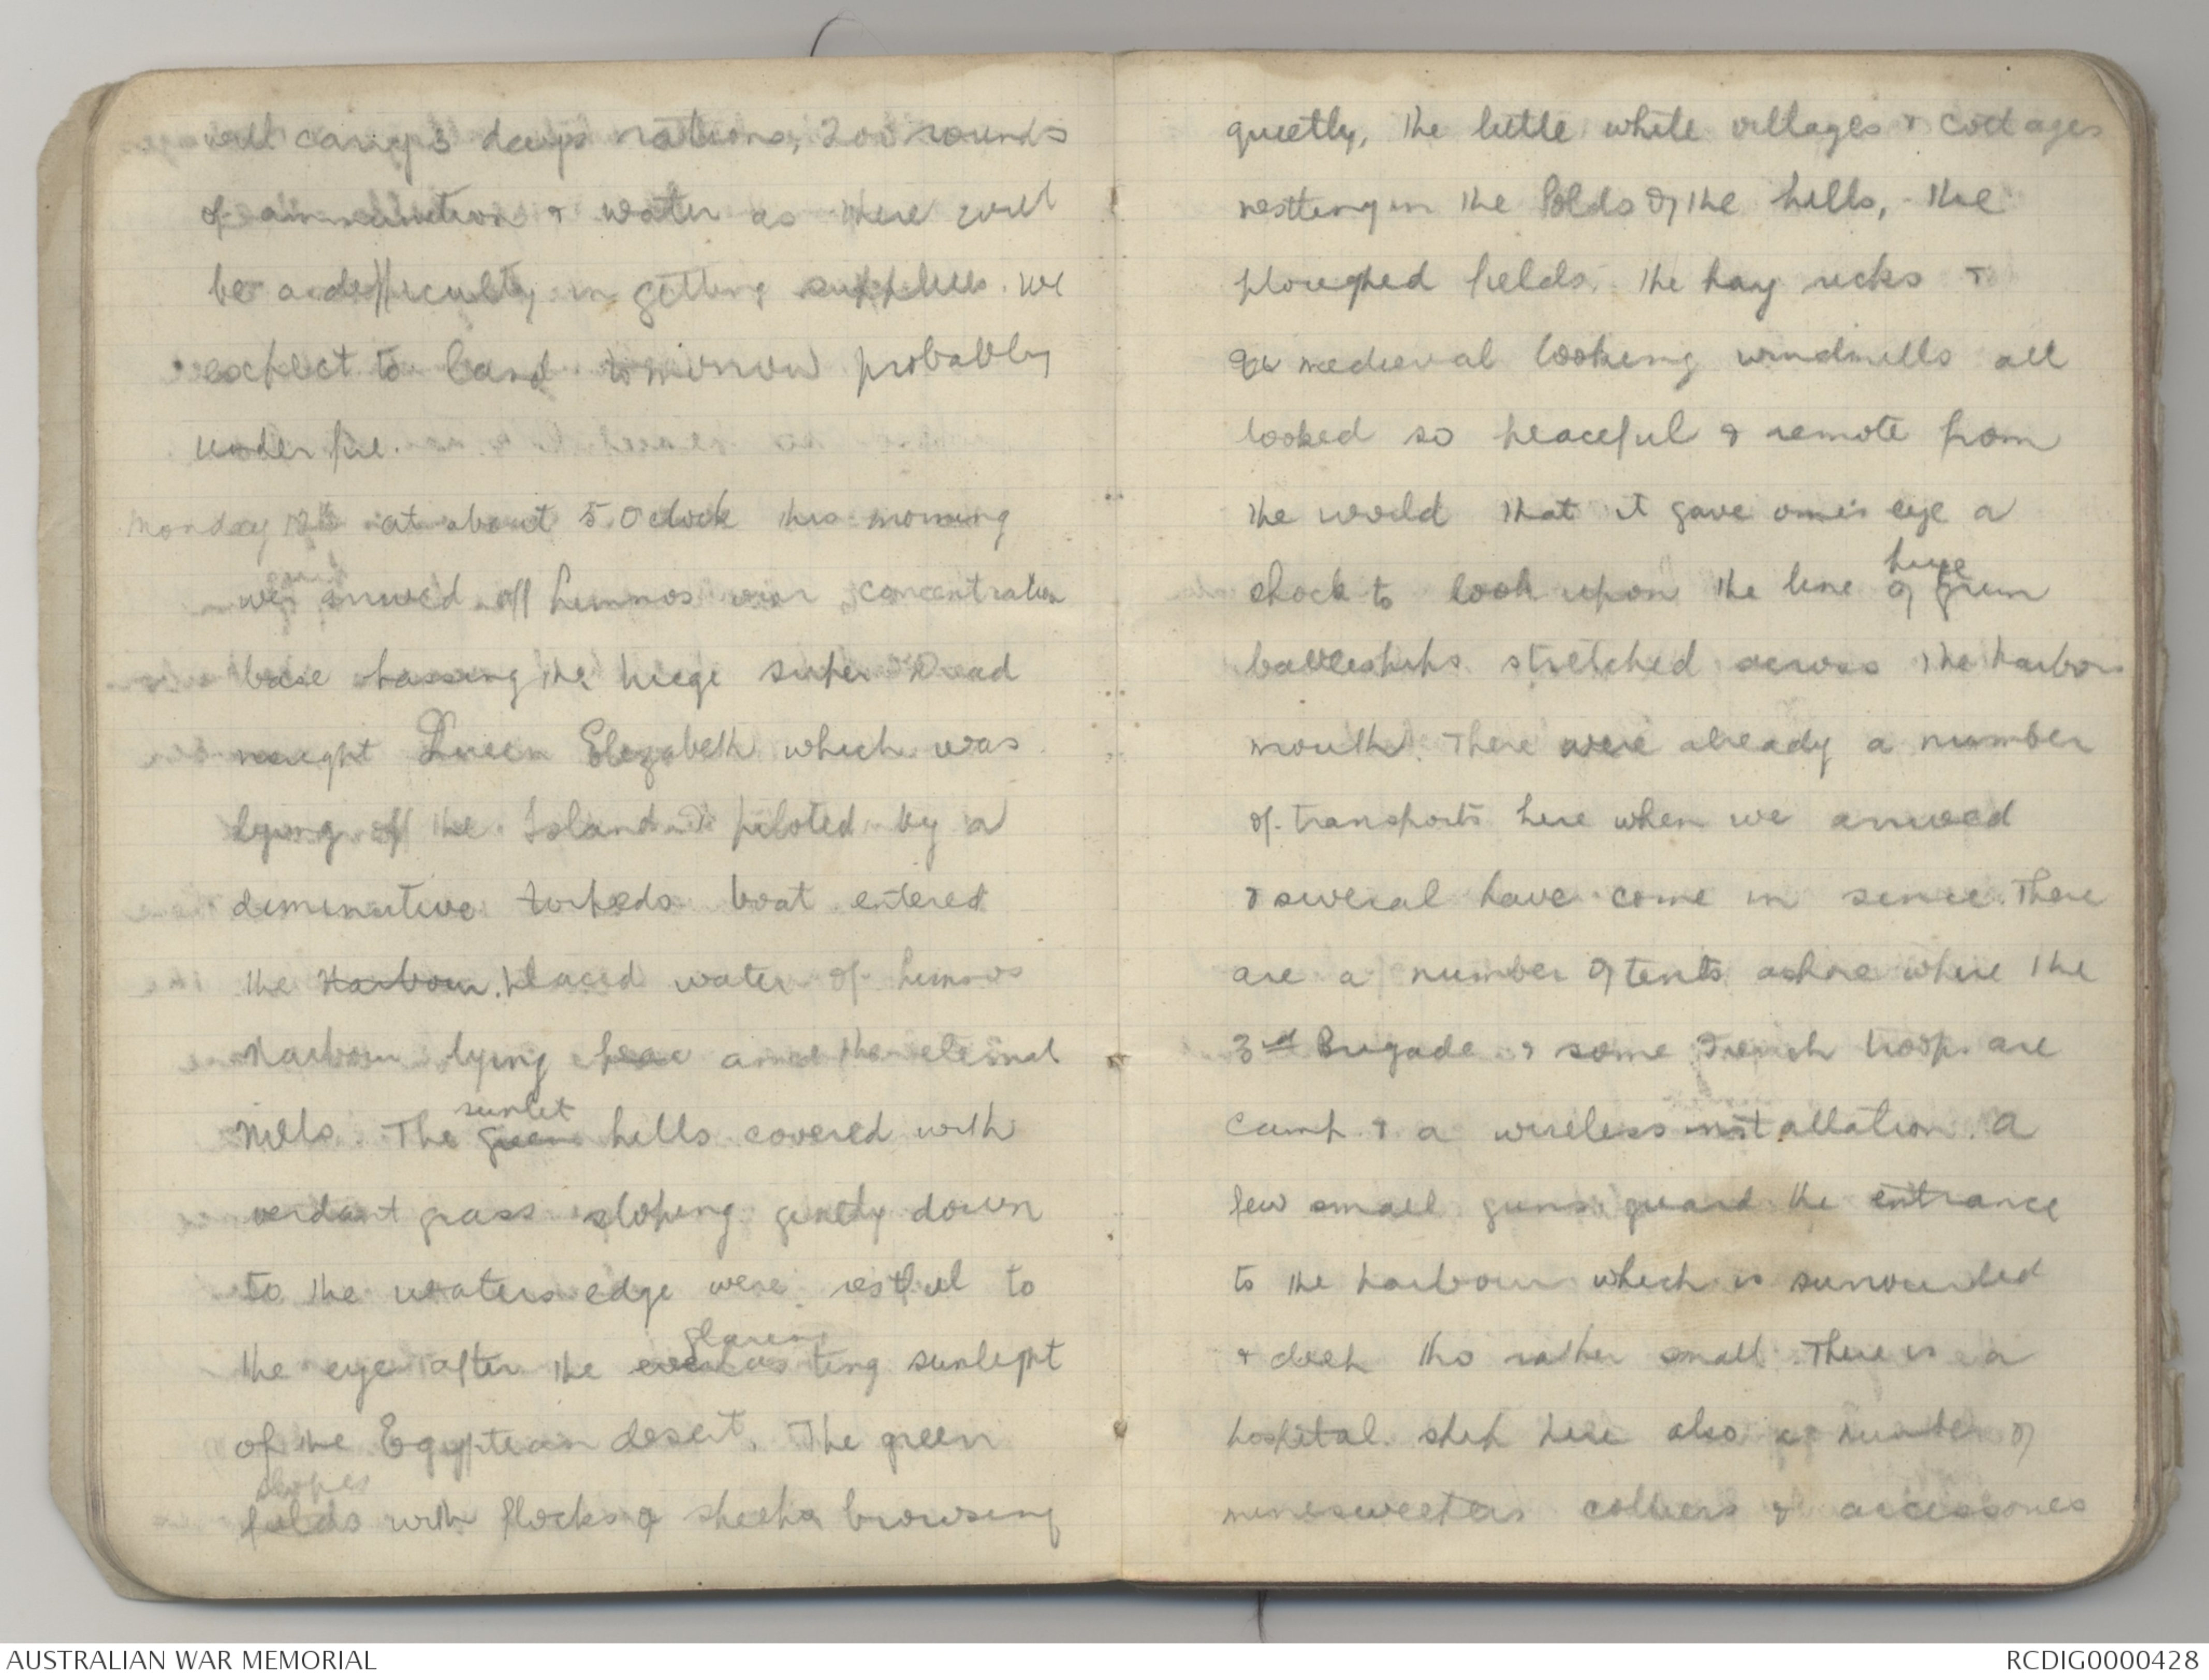 will carry 3 days rations, 200 rounds
of ammunition & water as there will
be a difficulty in getting supplies. We
expect to land tomorrow probably
under fire.
Monday 12th at about 5 Oclock this morning
we arrived off Lemnos our concentration
base passing the huge super Dread
nought Queen Elizabeth which was
lying off the Island & piloted by a
diminutive torpedo boat entered
the Harbour. placid water of Lemnos
Harbour lying amid the eternal
hills. The green sunlit hills covered with
verdant grass sloping gently down
to the waters edge were restful to
the eye after the everlasting glaring sunlight
of the Egyptian desert. The green
slopes
fields with flocks of sheep browsing
quietly, the little white villages & cottages
nestling in the folds of the hills, the
ploughed fields, the hay ricks &
medieval looking windmills all
looked so peaceful & remote from
the world that it gave one's eye a
shock to look upon the line of huge grim
battleships stretched across the harbor
mouth. There were already a number
of transports here when we arrived
& several have come in since. There
are a number of tents ashore where the
3rd Brigade & some French troops are
camp & a wireless installation. A
few small guns guard the entrance
to the harbour which is surrounded
& deep tho rather small. There is a
hospital ship here also a number of
minesweepers colliers & accessories
AUSTRALIAN WAR MEMORIAL
RCDIG0000428